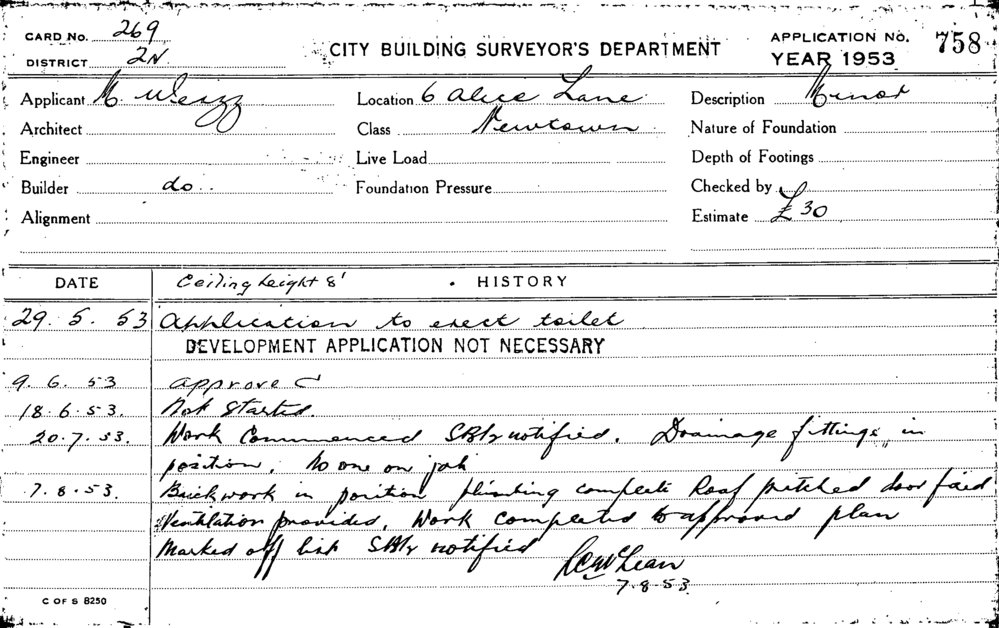 CARD No. 269
DISTRICT 2N
CITY BUILDING SURVEYOR'S DEPARTMENT
APPLICATION No. 758
YEAR 1953
Applicant M. Weizz Location 6 Alice Lane Description Minor
Architect Class Newtown Nature of Foundation
Engineer Live Load Depth of Footings
Builder do.. Foundation Pressure Checked by
Alignment Estimate £30
DATE Ceiling height 8' HISTORY
29. 5. 53 Application to erect toilet
DEVELOPMENT APPLICATION NOT NECESSARY
9. 6. 53 approved
18.6.53. Not Started.
20.7.53. Work Commenced notified. Drainage fittings in
position. No one on job
7.8.53. Brickwork in position plumbing complete Roof pitched door fixed
Ventilation provided. Work completed to approved plan
Marked off list notified
McLean
7.8.53
C OF S 8250